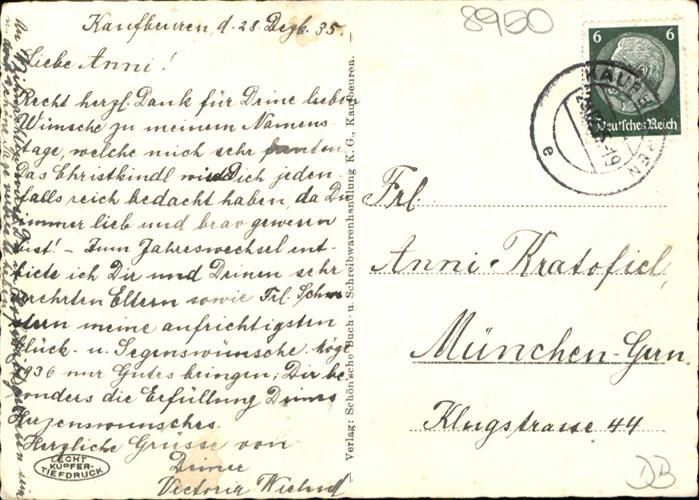 Kaufbeuren, d. 28. Dezb. 35.
Liebe Anni!
Recht herzl. Dank für Deine lieben
Wünsche zu meinem Namens-
tage, welche mich sehr freuten
Das Christkindl wird Dich jeden-
falls reich bedacht haben, da Du
immer lieb und brav gewesen
bist! – Zum Jahreswechsel ent-
biete ich Dir und Deinen sehr
verehrten Eltern sowie Frl. Schwe-
stern meine aufrichtigsten
Glück- u. Segenswünsche. Möge
1936 nur Gutes bringen; Dir be-
sonders die Erfüllung Deines
Herzenswunsches.
Herzliche Grüsse von
Deiner
Victoria Wielnd
ECHT
KUPFER-
TIEFDRUCK
Verlag: Schön'sche Buch- u. Schreibwarenhandlung K. G., Kaufbeuren.
8950
6 6
Deutsches Reich
KAUFBEUREN
e
Frl.
Anni Kratofiel,
München-Gern
Klugstrasse 44
DB